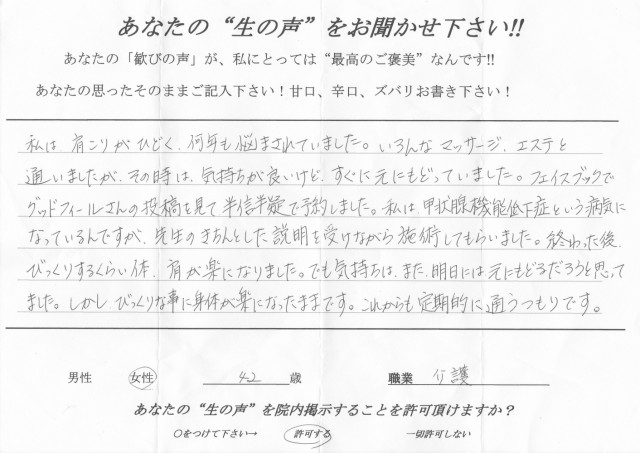 あなたの“生の声”をお聞かせ下さい!!
あなたの「歓びの声」が、私にとっては“最高のご褒美”なんです!!
あなたの思ったそのままご記入下さい！甘口、辛口、ズバリお書き下さい！
私は、肩こりがひどく、何年も悩まされていました。いろんなマッサージ、エステと
通いましたが、その時は、気持ちが良いけど、すぐに元にもどっていました。フェイスブックで
グッドフィールさんの投稿を見て半信半疑で予約しました。私は甲状腺機能低下症という病気に
なっているんですが、先生のきちんとした説明を受けながら施術してもらいました。終わった後、
びっくりするくらい体、肩が楽になりました。でも気持ちは、また、明日には元にもどるだろうと思って
ました。しかしびっくりな事に身体が楽になったままです。これからも定期的に通うつもりです。
男性 女性 42 歳 職業 介護
あなたの“生の声”を院内掲示することを許可頂けますか？
○をつけて下さい→ 許可する 一切許可しない